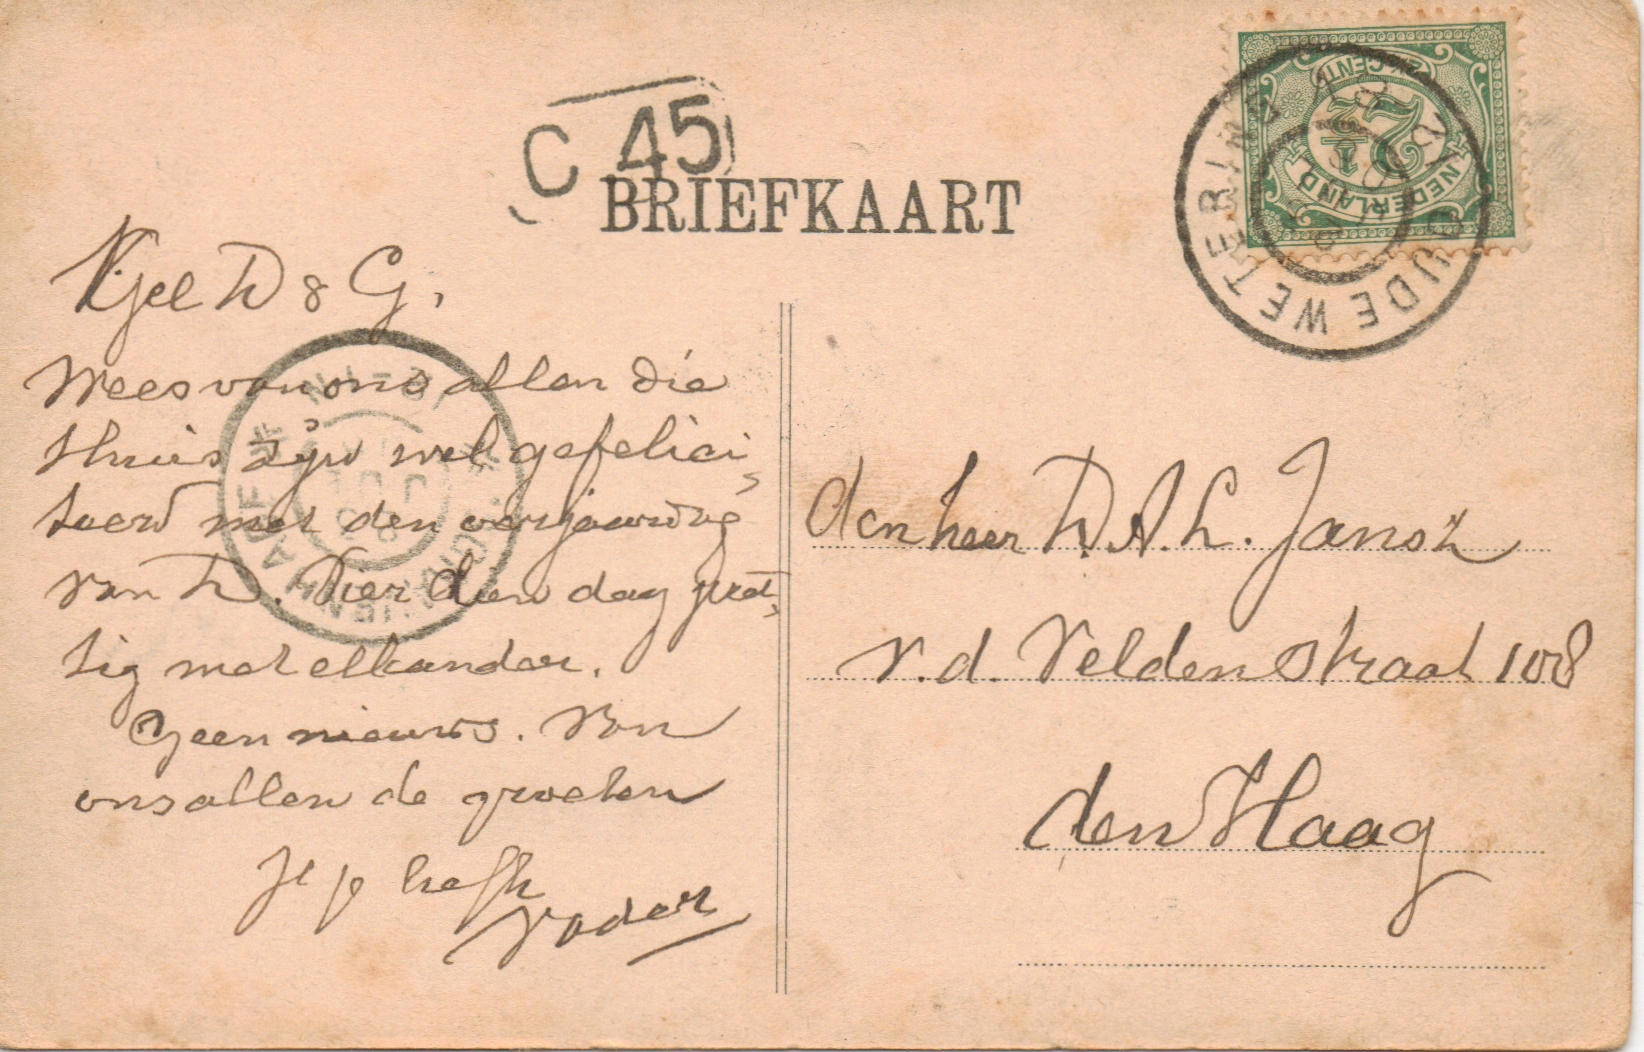 C 45
BRIEFKAART
NEDERLAND
2½
CENT
OUDE WETERING
's GRAVENHAGE
D & G.
Wees van ons allen die
thuis zijn wel gefelici„
teerd met den verjaardag
van D. Vier dien dag pret„
tig met elkander.
Geen nieuws. Van
ons allen de groeten
liefh
Vader
den heer D. A. L. Jansz
v. d. Veldenstraat 108
den Haag